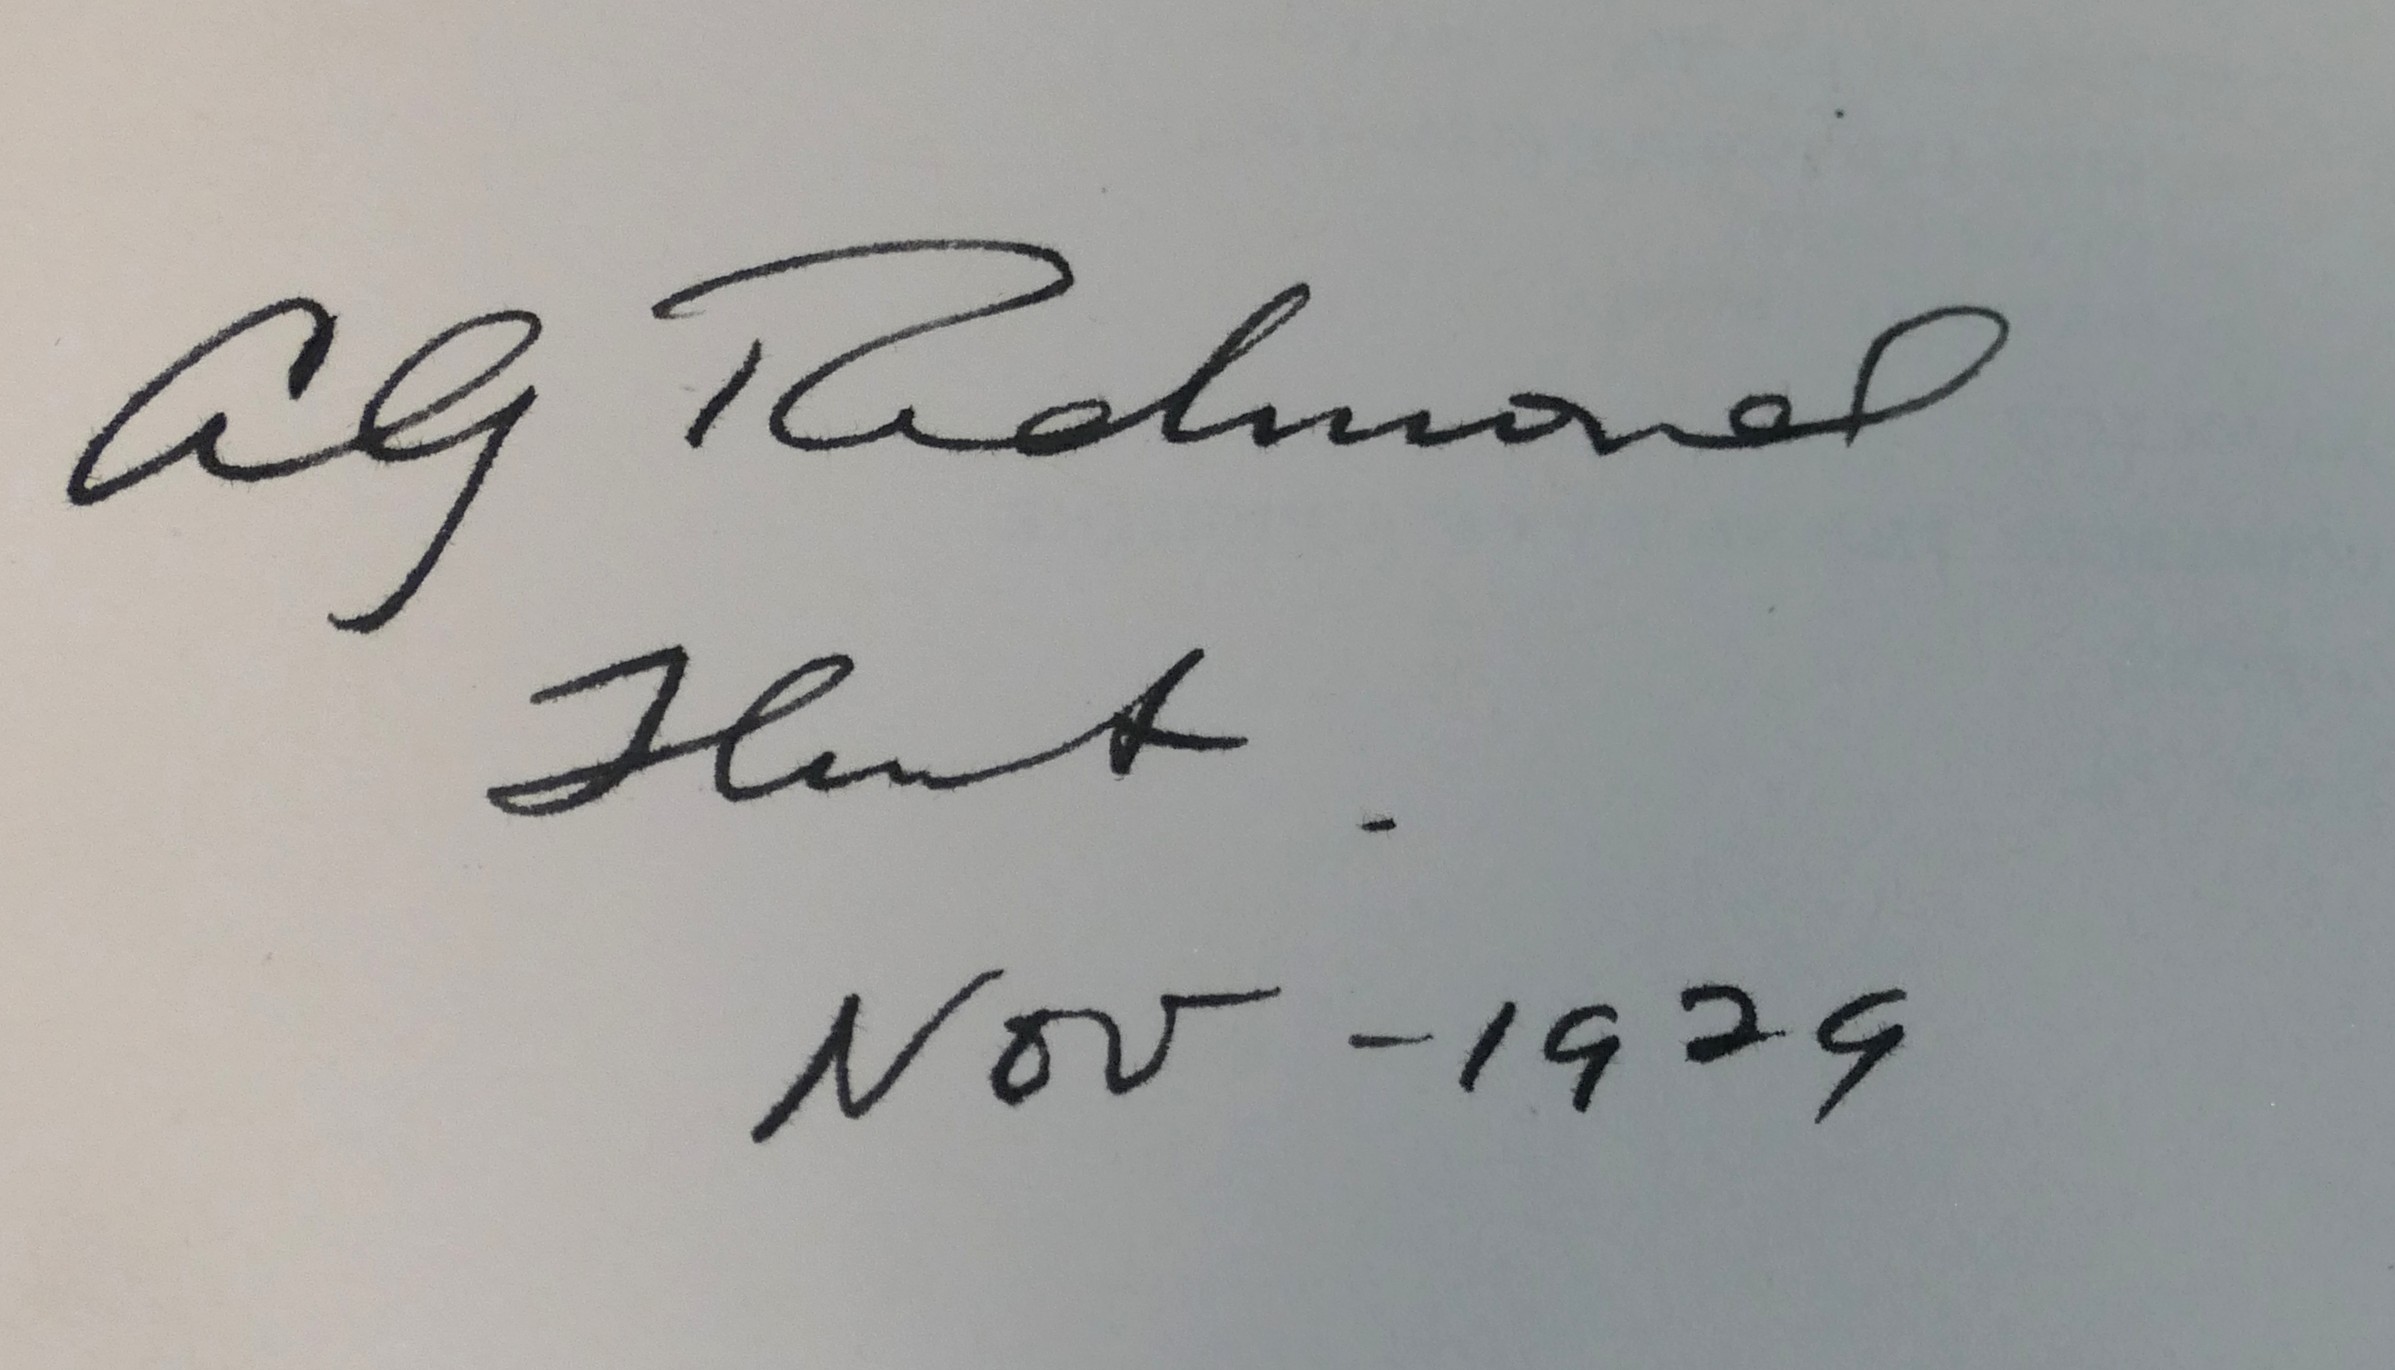 AG Redmond
Flint.
Nov - 1929